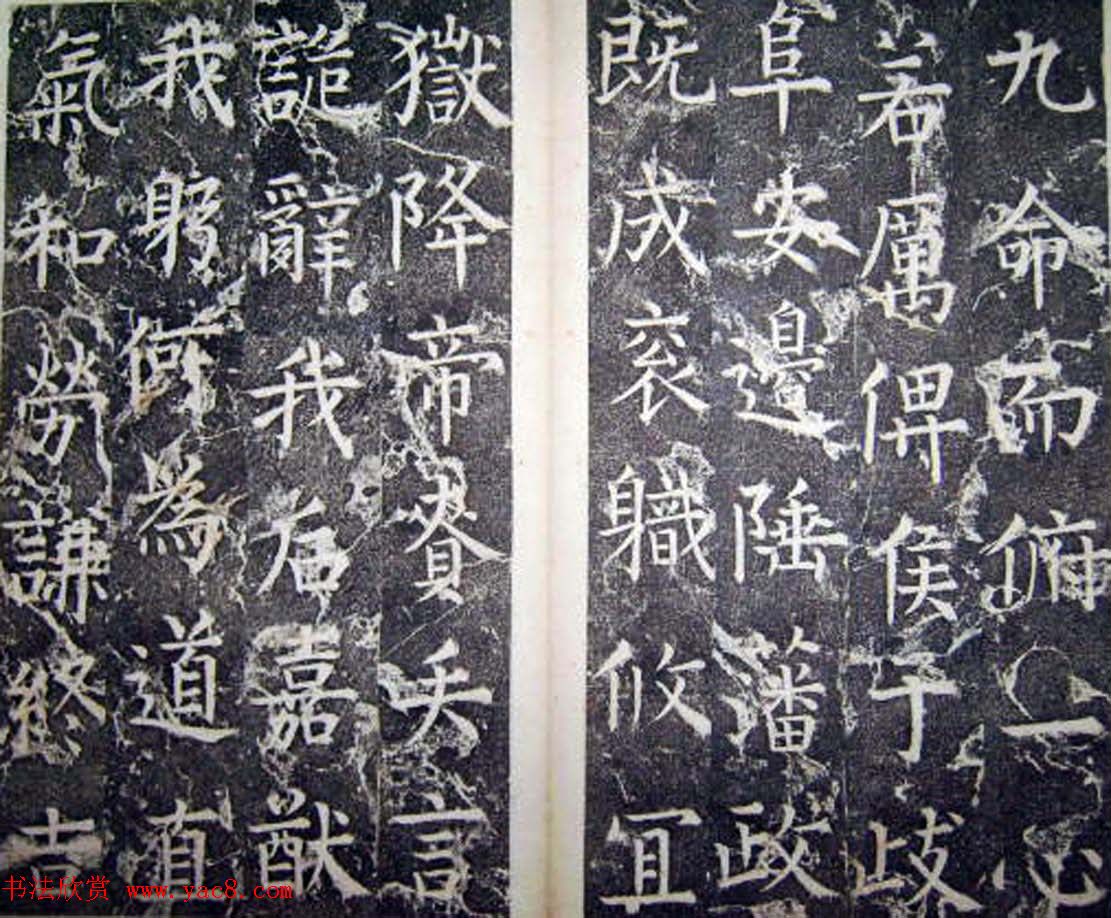 九命而俯一心
若厲俾侯于歧
阜安邊陲藩政
既成衮職攸宜
嶽降帝賚矢言
誕辭我后嘉猷
我躬何為道直
氣和勞謙終吉
书法欣赏 www.yac8.com